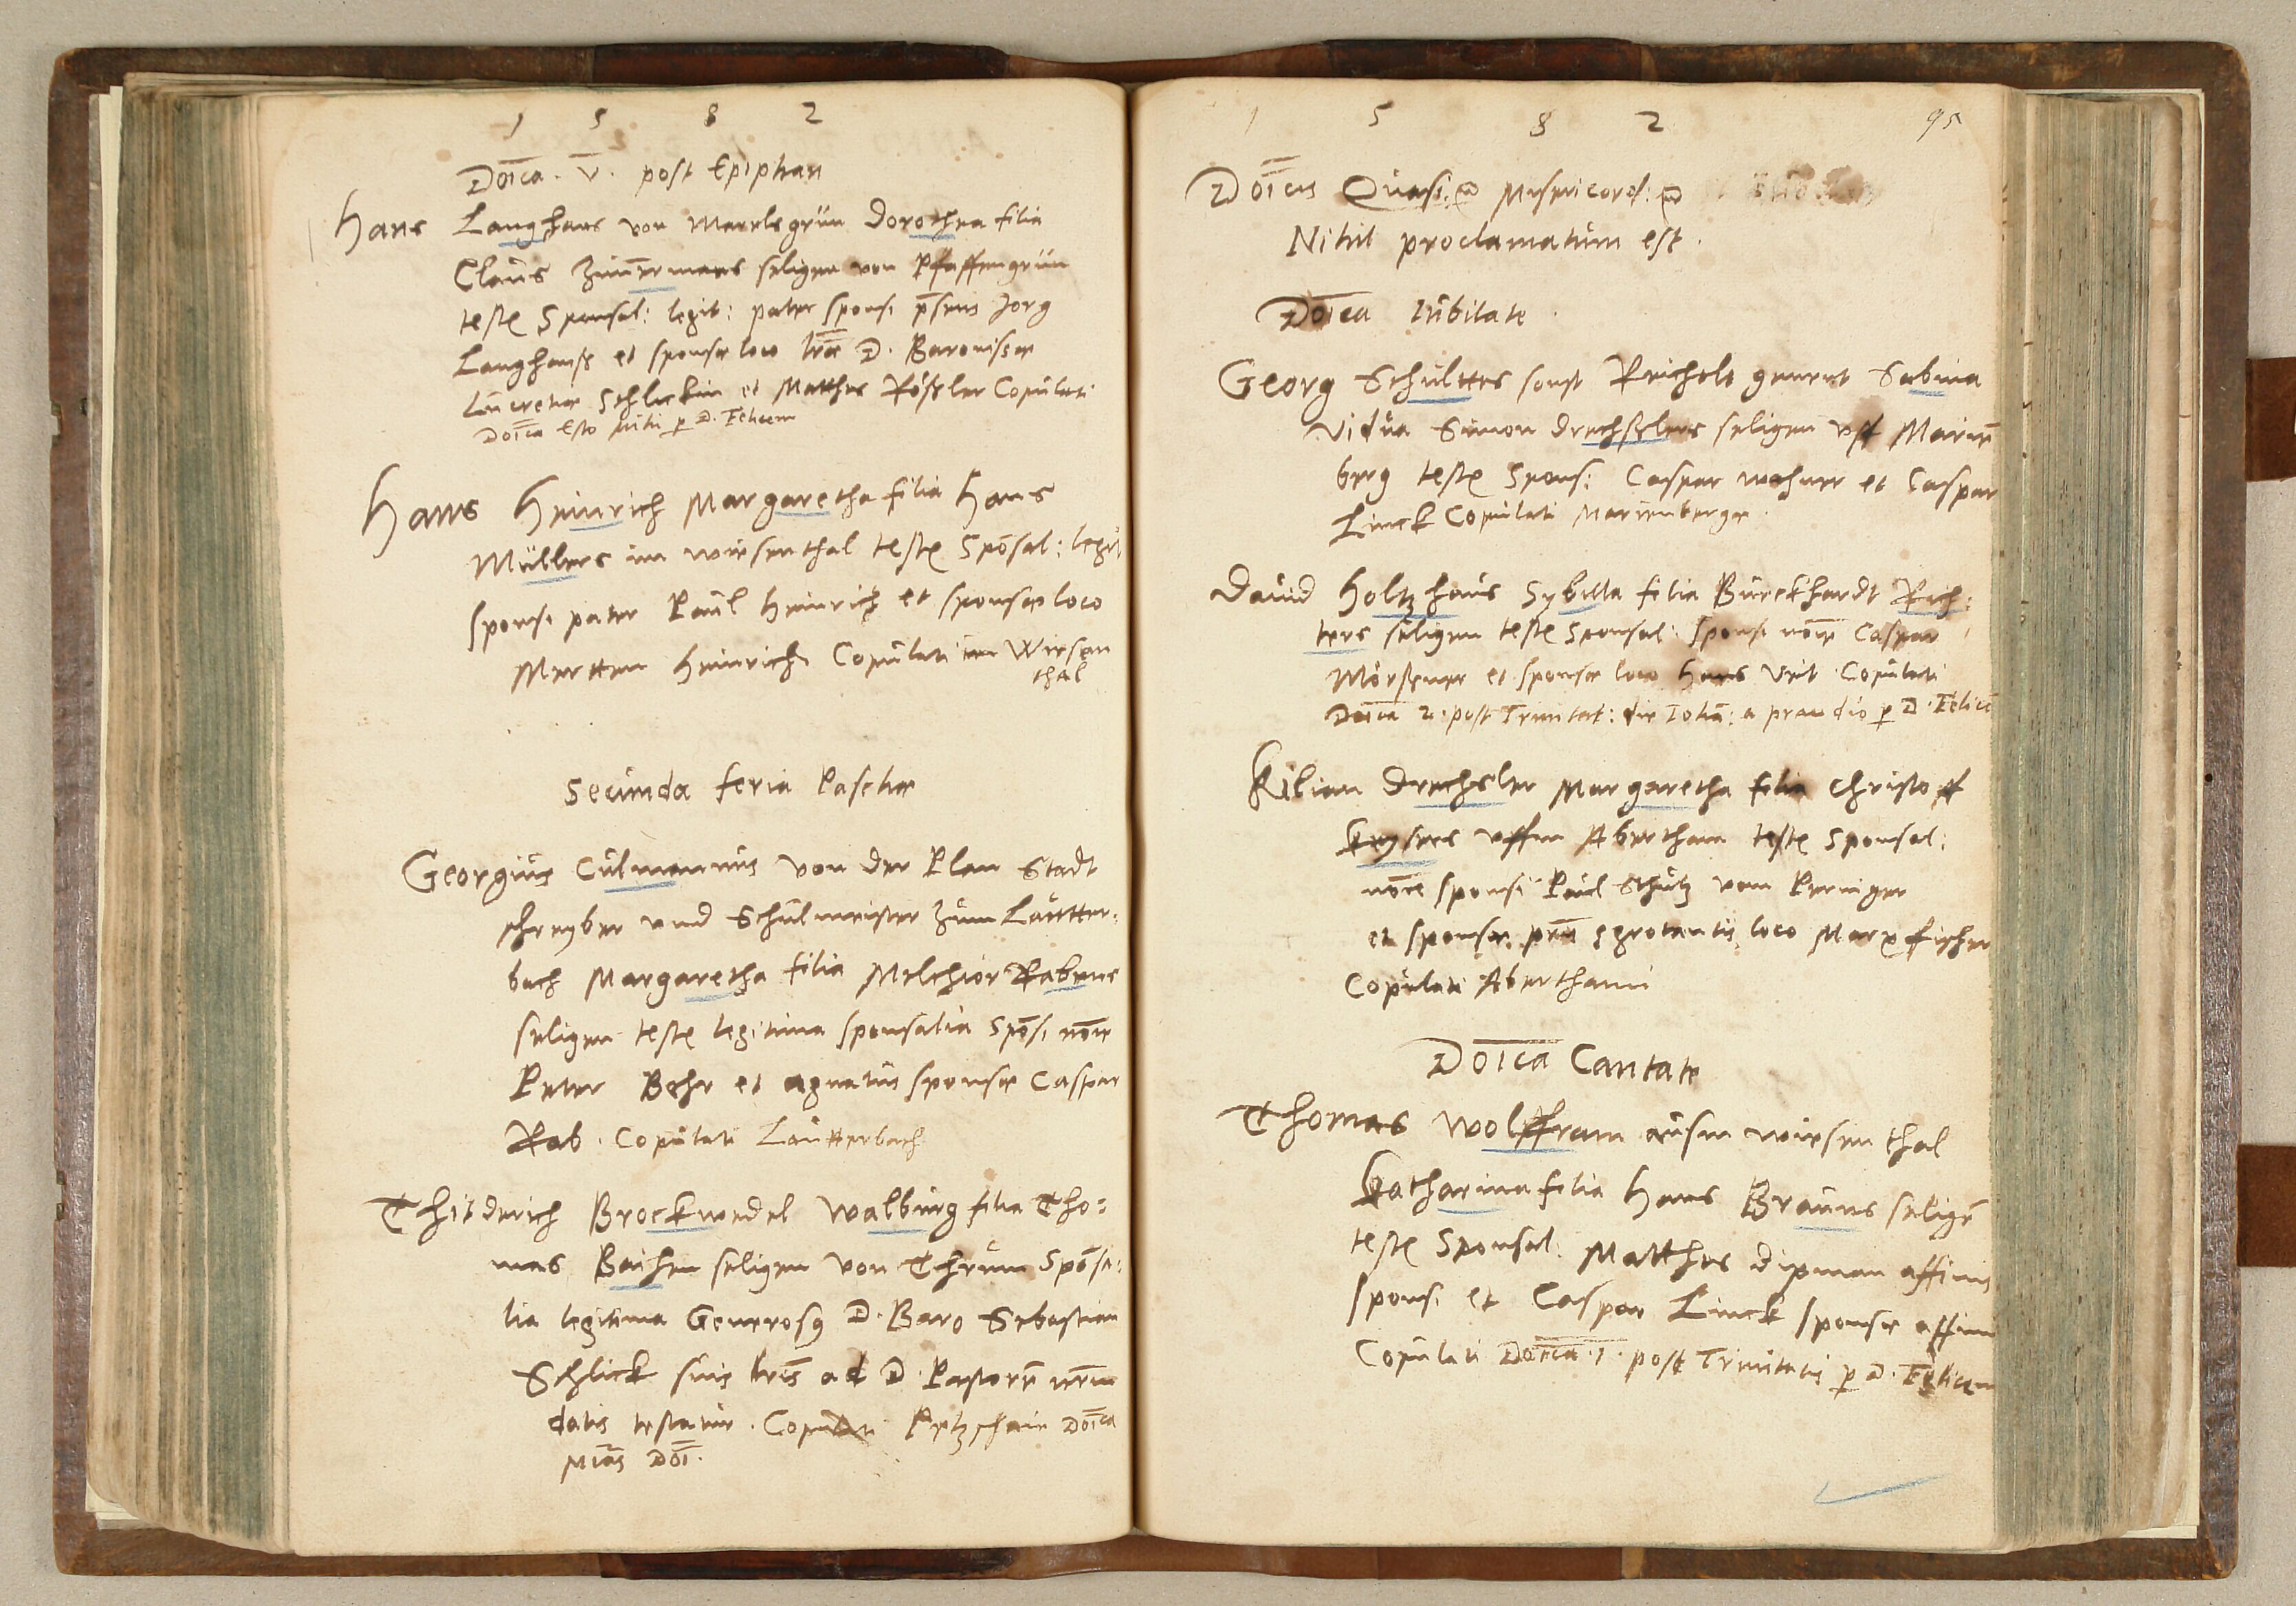 1 5 8 2
Doĩca. v. post Epiphan
Hans Langhans von Marelsgrün Dorothea filia
Claus Zimmermans seligen von Pfaffengrün
testes Sponsal: legit: pater sponsi p̃sens Jorg
Langhanß et sponsæ loco lr̃æ D. Baronissæ
Lucretiæ Schlickin et Matthes Rößler Copulati
Doĩca Esto mihi p D. Felicem
Hans Heinrich Margaretha filia Hans
Müllers im wiesenthal testes Spõsal: legit
sponsi pater Paul Heinrich et sponsæ loco
Mertten Heinrich Copulati im Wiesen
thal
Secunda feria Paschæ
Georgius Culmannus von der Plan Stadt
schreyber und Schulmeister zum Lautter:
bach Margaretha filia Melchior Rabens
seligen testes legitima sponsalia Spõsi nõie
Peter Behr et agnatus sponsæ Caspar
Rab. Copulati Lautterbach
Thiederich Brockwedel Walburg filia Tho:
mas Baihen seligen von Thrum Spõsa:
lia legitima Generosus D. Baro Sebastian
Schlick suis lr̃is ad D. Pastorẽ nr̃m
datis testatur. Copulati Petzschaie Doĩca
Miãs Doĩ.
1 5 8 2 95
Doĩcis Quasi: Misericord:
Nihil proclamatum est.
Doĩca Iubilate.
Georg Schulttes sonst Reichelt genent Sabina
Vidua Simon Drechßlers seligen uff Mariẽ
berg testes Sponsi Caspar wehner et Caspar
Linck Copulati Marienberge.
David Holtzhaus Sybilla filia Burckhardt Rich:
ters seligen testes Sponsal: sponsi nõie Caspar
Mörßener et sponsæ loco Hans Veit Copulati
Doĩca 2. post Trinitat: die Iohã: a prandio p D. Felicẽ
Kilian Drechsler Margaretha filia Christoff
Keysers uffm Abertham testes Sponsal:
nõie sponsi Paul Schütz vom Perninger
et sponsæ pr̃is egrotantis loco Marx fischer
Copulati Aberthami
Doĩca Cantate
Thomas Wolffram ausm wiesenthal
Katharina filia Hans Brauns seligẽ
testes Sponsal: Matthes Dipman affinis
sponsi et Caspar Linck sponsæ affinis
Copulati Doĩca. 1. post Trinitatis p D. Felicem